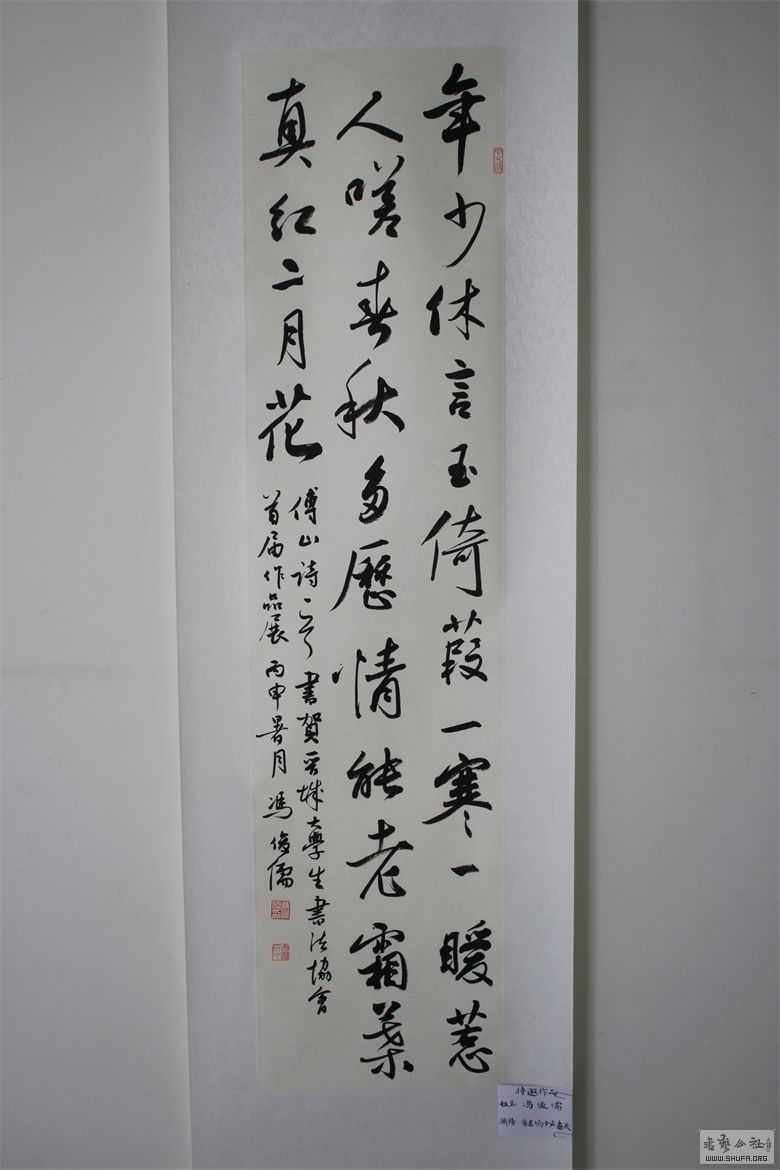 年少休言玉倚葭一寒一暖惹
人嗟春秋多歷情能老霜葉
真紅二月花
傅山詩一首書賀晋城大學生書法協會
首届作品展丙申暑月馮俊儒
特邀作品
姓名 馮俊儒
書藝公社
WWW.SHUFA.ORG